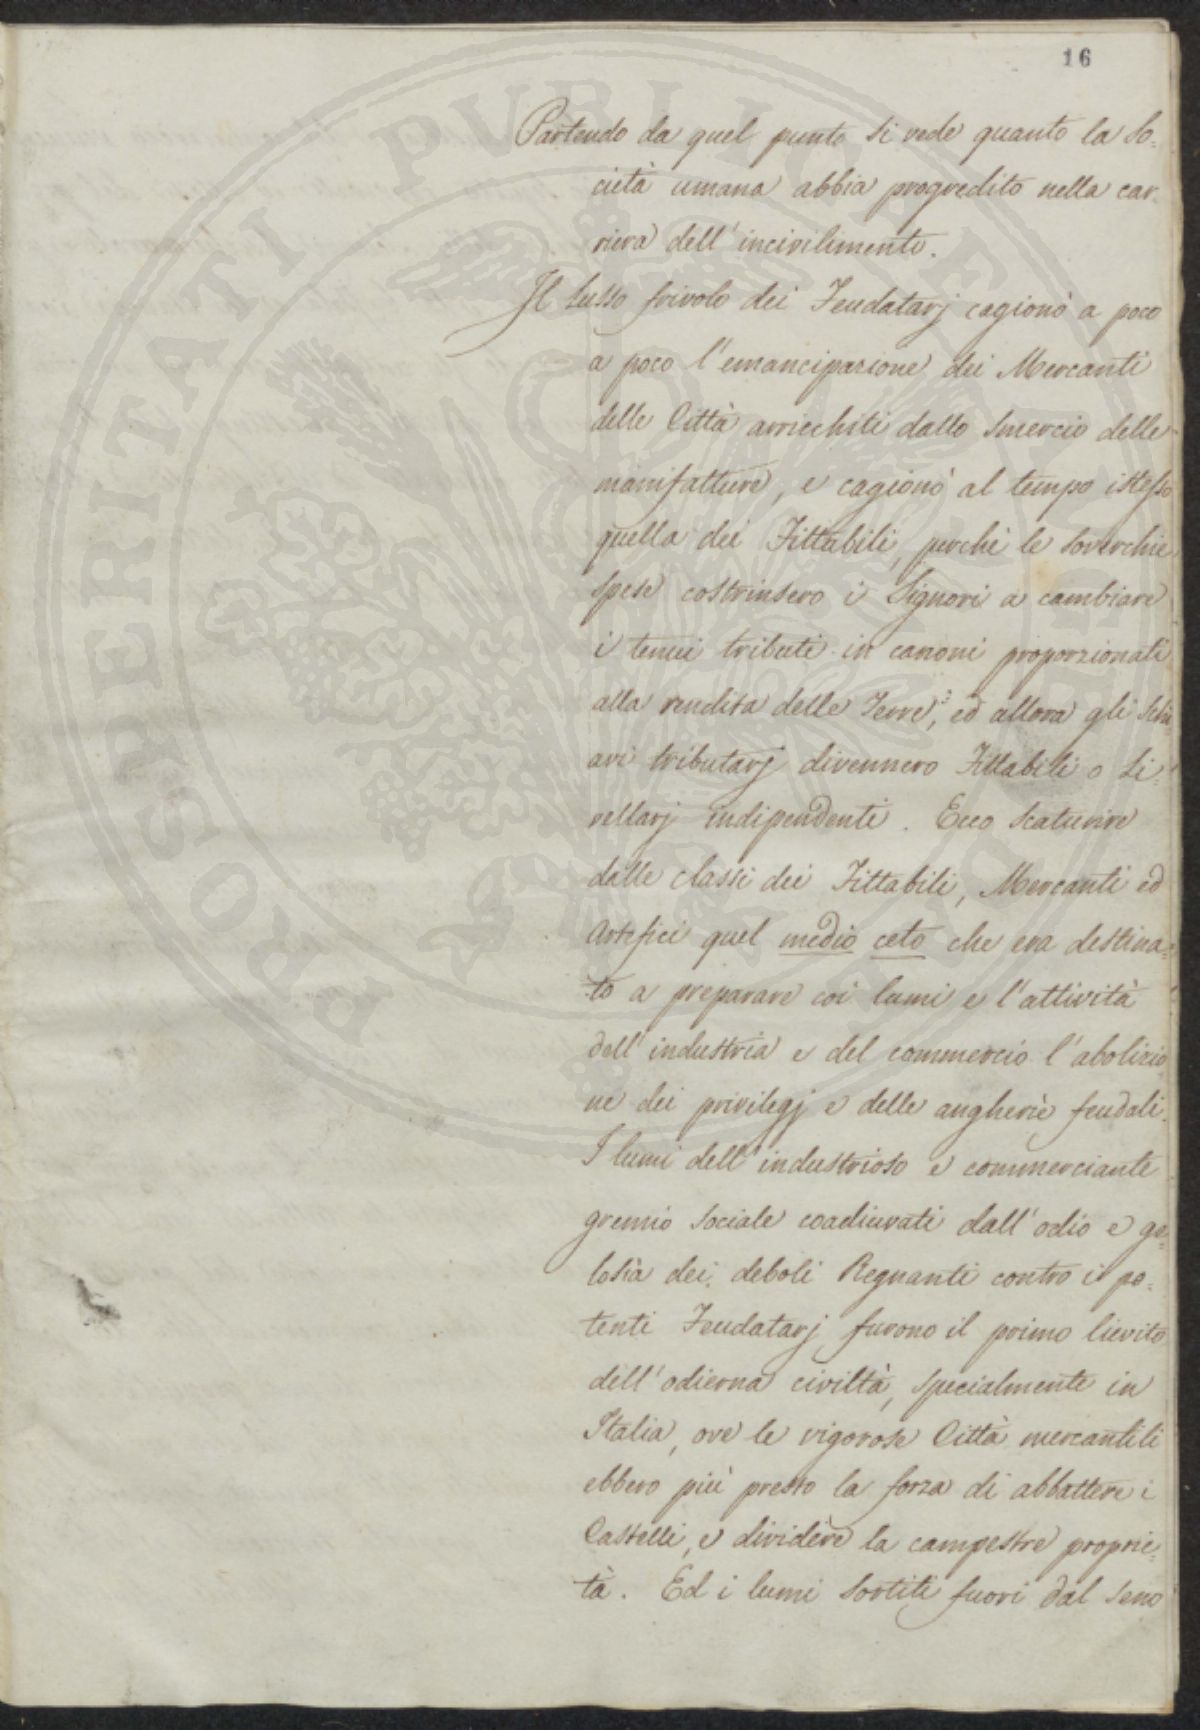 16
Partendo da quel punto si vede quanto la So-
cietà umana abbia progredito nella car-
riera dell'incivilimento.
Il lusso frivolo dei Feudatarj cagionò a poco
a poco l'emancipazione dei Mercanti
delle Città arricchiti dallo smercio delle
manifatture, e cagionò al tempo istesso
quella dei Fittabili, perchè le soverchie
spese costrinsero i Signori a cambiare
i tenui tributi in canoni proporzionati
alla rendita delle Terre; ed allora gli Schi
avi tributarj divennero Fittabili o Li-
vellarj indipendenti. Ecco scaturire
dalle classi dei Fittabili, Mercanti ed
Artefici quel medio ceto che era destina-
to a preparare coi lumi e l'attività
dell'industria e del commercio l'abolizio
ne dei privilegj e delle angherie feudali.
I lumi dell'industrioso e commerciante
gremio sociale coadiuvati dall'odio e ge-
losia dei deboli Regnanti contro i po-
tenti Feudatarj furono il primo lievito
dell'odierna civiltà, specialmente in
Italia, ove le vigorose Città mercantili
ebbero più presto la forza di abbattere i
Castelli, e dividere la campestre proprie-
tà. Ed i lumi sortiti fuori dal seno
PROSPERITATI PUBLICAE AUGENDAE